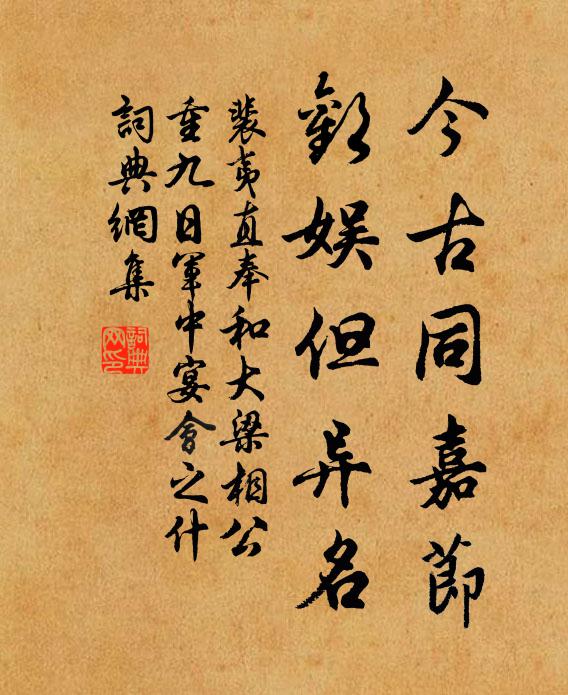 今古同嘉節
歡娱但异名
裴夷直奉和大梁相公
重九日軍中宴會之什
詞典網集
詞典网印